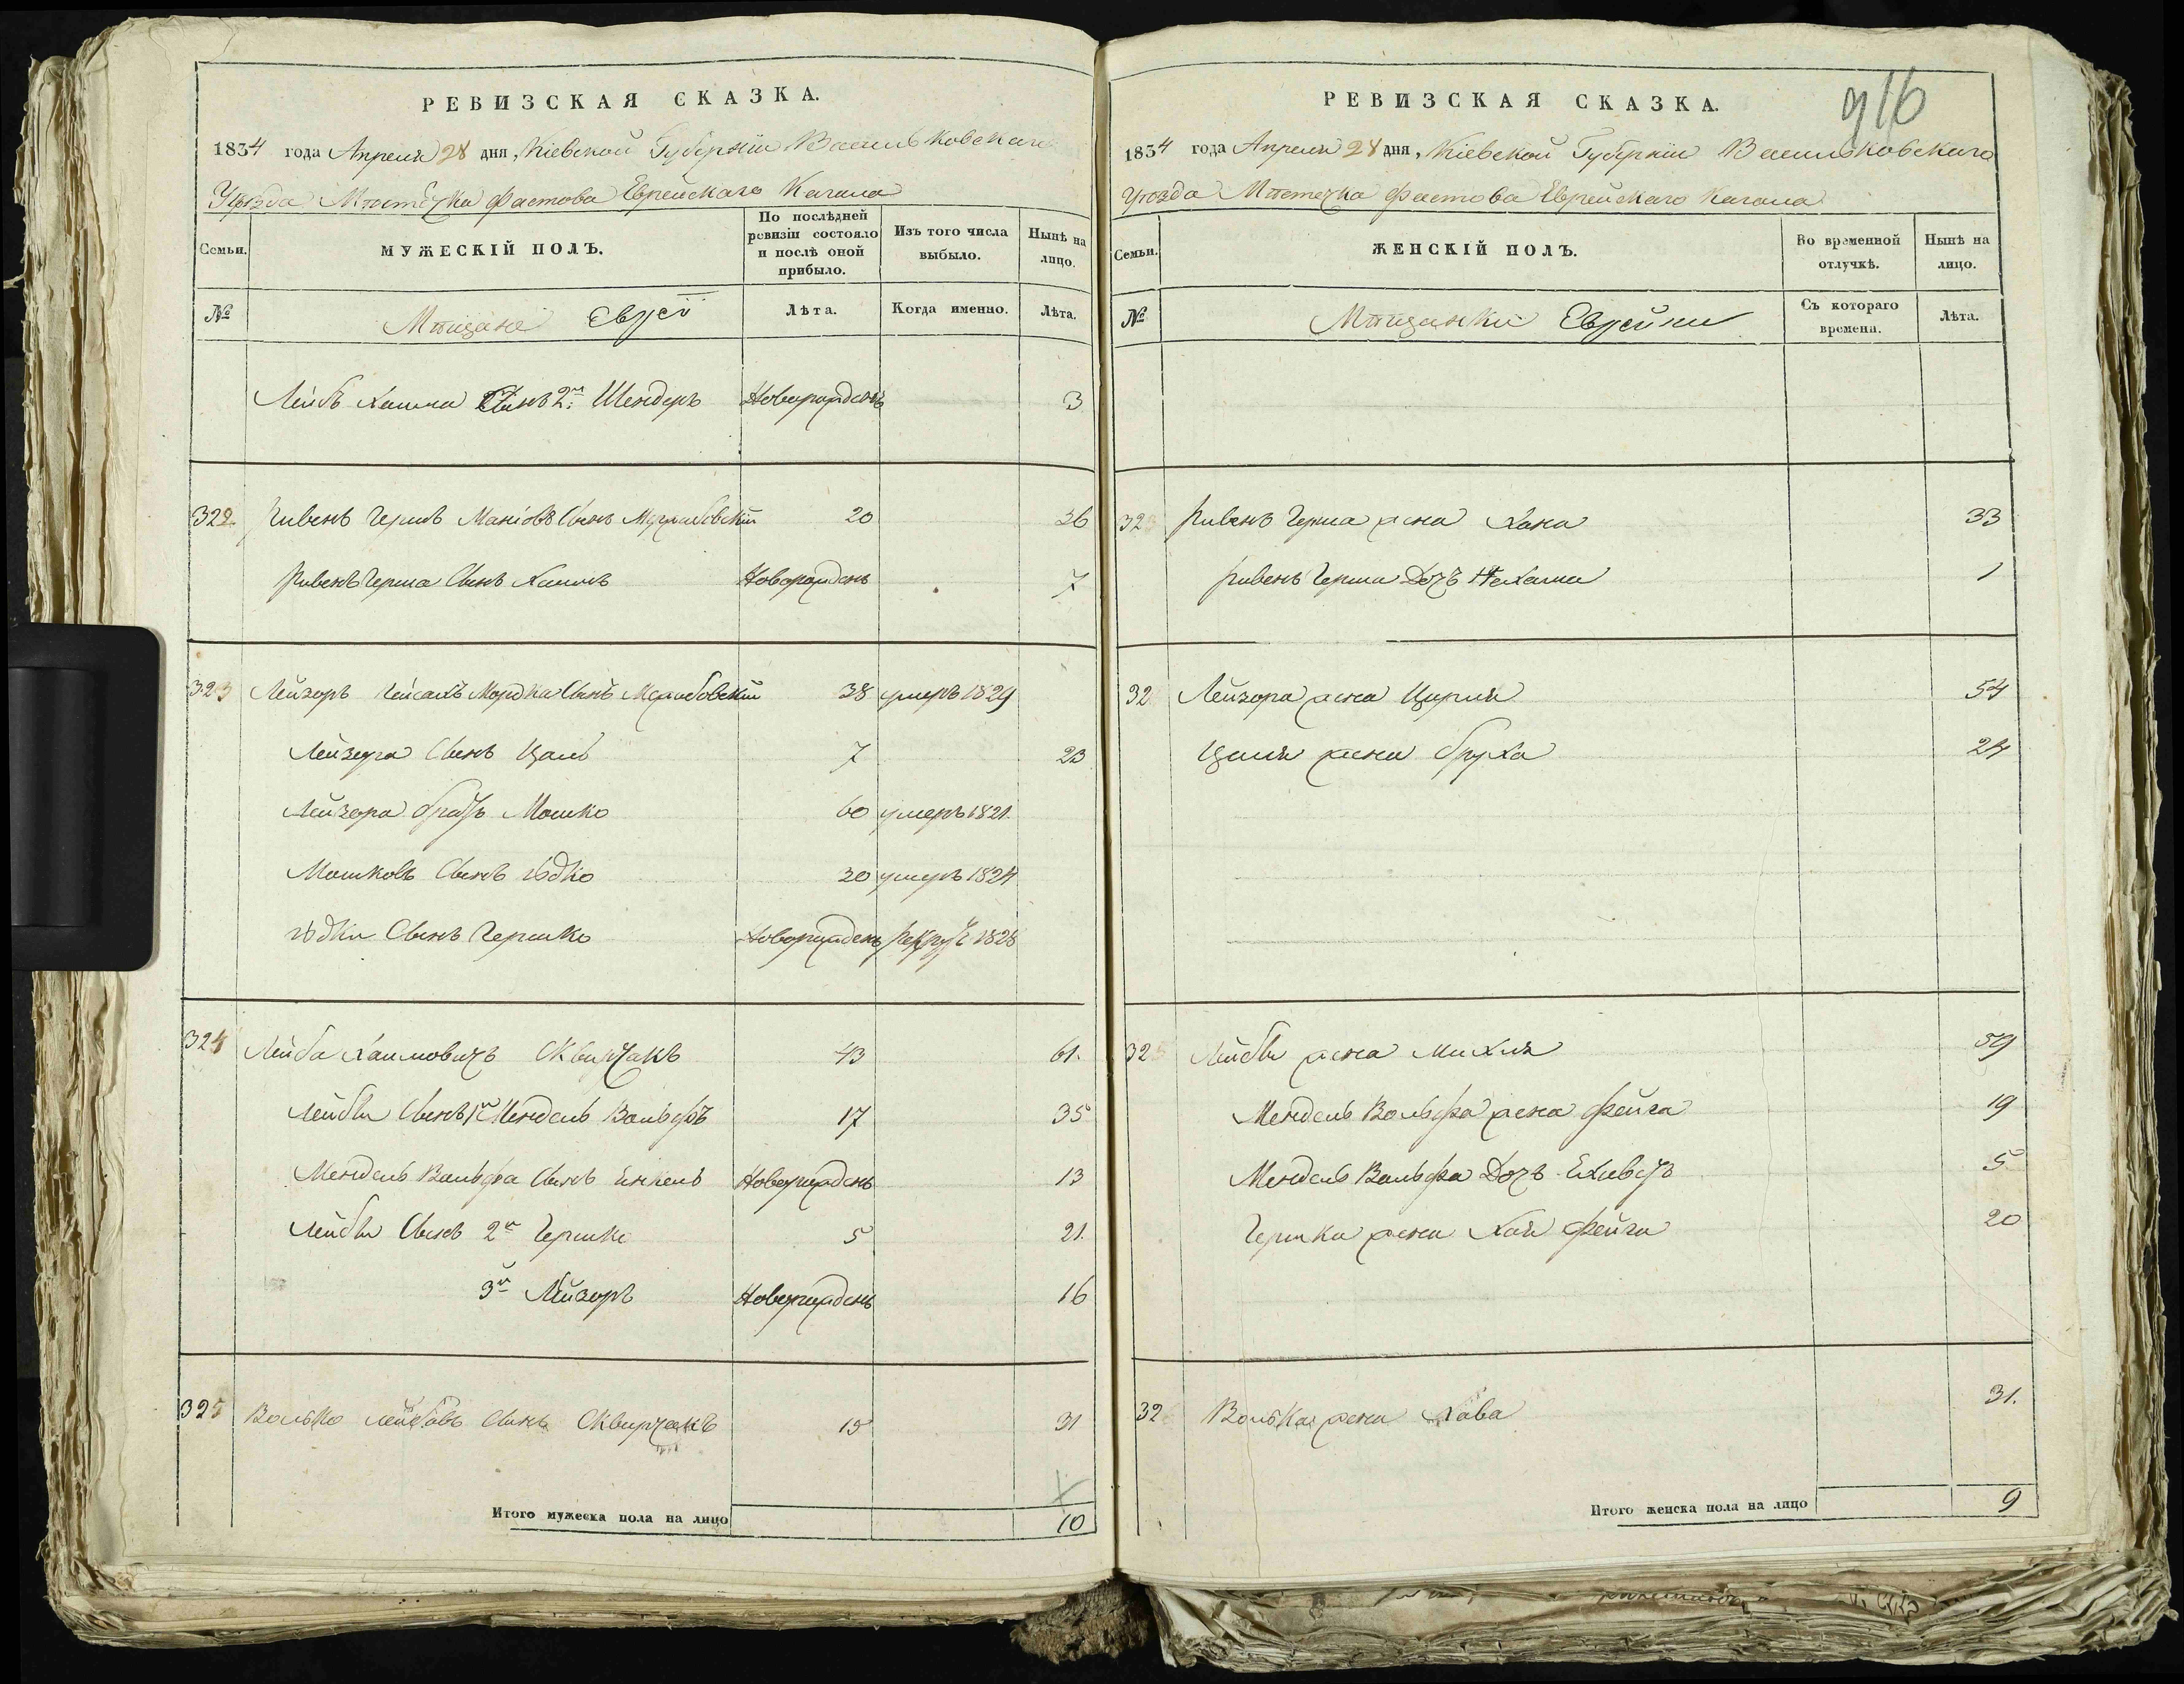 РЕВИЗСКАЯ СКАЗКА.
1834 года Апреля 28 дня, Кіевской Губерніи Васильковскаго
Уѣзда Мѣстечка Фастова Еврейскаго Кагала
Семьи. МУЖЕСКІЙ ПОЛЪ. По послѣдней ревизіи состояло и послѣ оной прибыло. Изъ того числа выбыло. Нынѣ на лицо.
№ Мѣщане Евреи Лѣта. Когда именно. Лѣта.
Лейбъ Хаима Сынъ 2й Шендеръ Новорожденъ 3
322. Ривенъ Гершъ Маніовъ Сынъ 20 36
Ривенъ Герша Сынъ Хаимъ Новорожденъ 7
323 Лейзоръ Пейсахъ Мордка Сынъ 38 умеръ 1829
Лейзора Сынъ Цаль 7 23
Лейзора братъ Мошко 60 умеръ 1821.
Мошковъ Сынъ Юдко 30 умеръ 1824
Юдки Сынъ Гершко Новорожденъ рекрутъ 1828
324 Лейба Хаимовичъ Сквирчакъ 43 61.
Лейбы Сынъ 1й Мендель Вольфъ 17 35
Мендель Вольфа Сынъ Янкель Новорожденъ 13
Лейбы Сынъ 2й Гершко 5 21.
3й Лейзоръ Новорожденъ 16
325 Волько Лейбовъ Сынъ Сквирчакъ 15 31
Итого мужеска пола на лицо 10
916
РЕВИЗСКАЯ СКАЗКА.
1834 года Апреля 28 дня, Кіевской Губерніи Васильковскаго
Уѣзда Мѣстечка Фастова Еврейскаго Кагала
Семьи. ЖЕНСКІЙ ПОЛЪ. Во временной отлучкѣ. Нынѣ на лицо.
№ Мѣщанки Еврейки Съ котораго времени. Лѣта.
323 Ривенъ Герша жена Хана 33
Ривенъ Герша Дочъ Нехама 1
32 Лейзора жена Цирля 54
Цаля жена Бруха 24
325 Лейбы жена Михля 59
Мендель Вольфа жена Фейга 19
Мендель Вольфа Дочъ 5
Гершка жена Хая Фейга 20
32 Волька жена Хава 31.
Итого женска пола на лицо 9